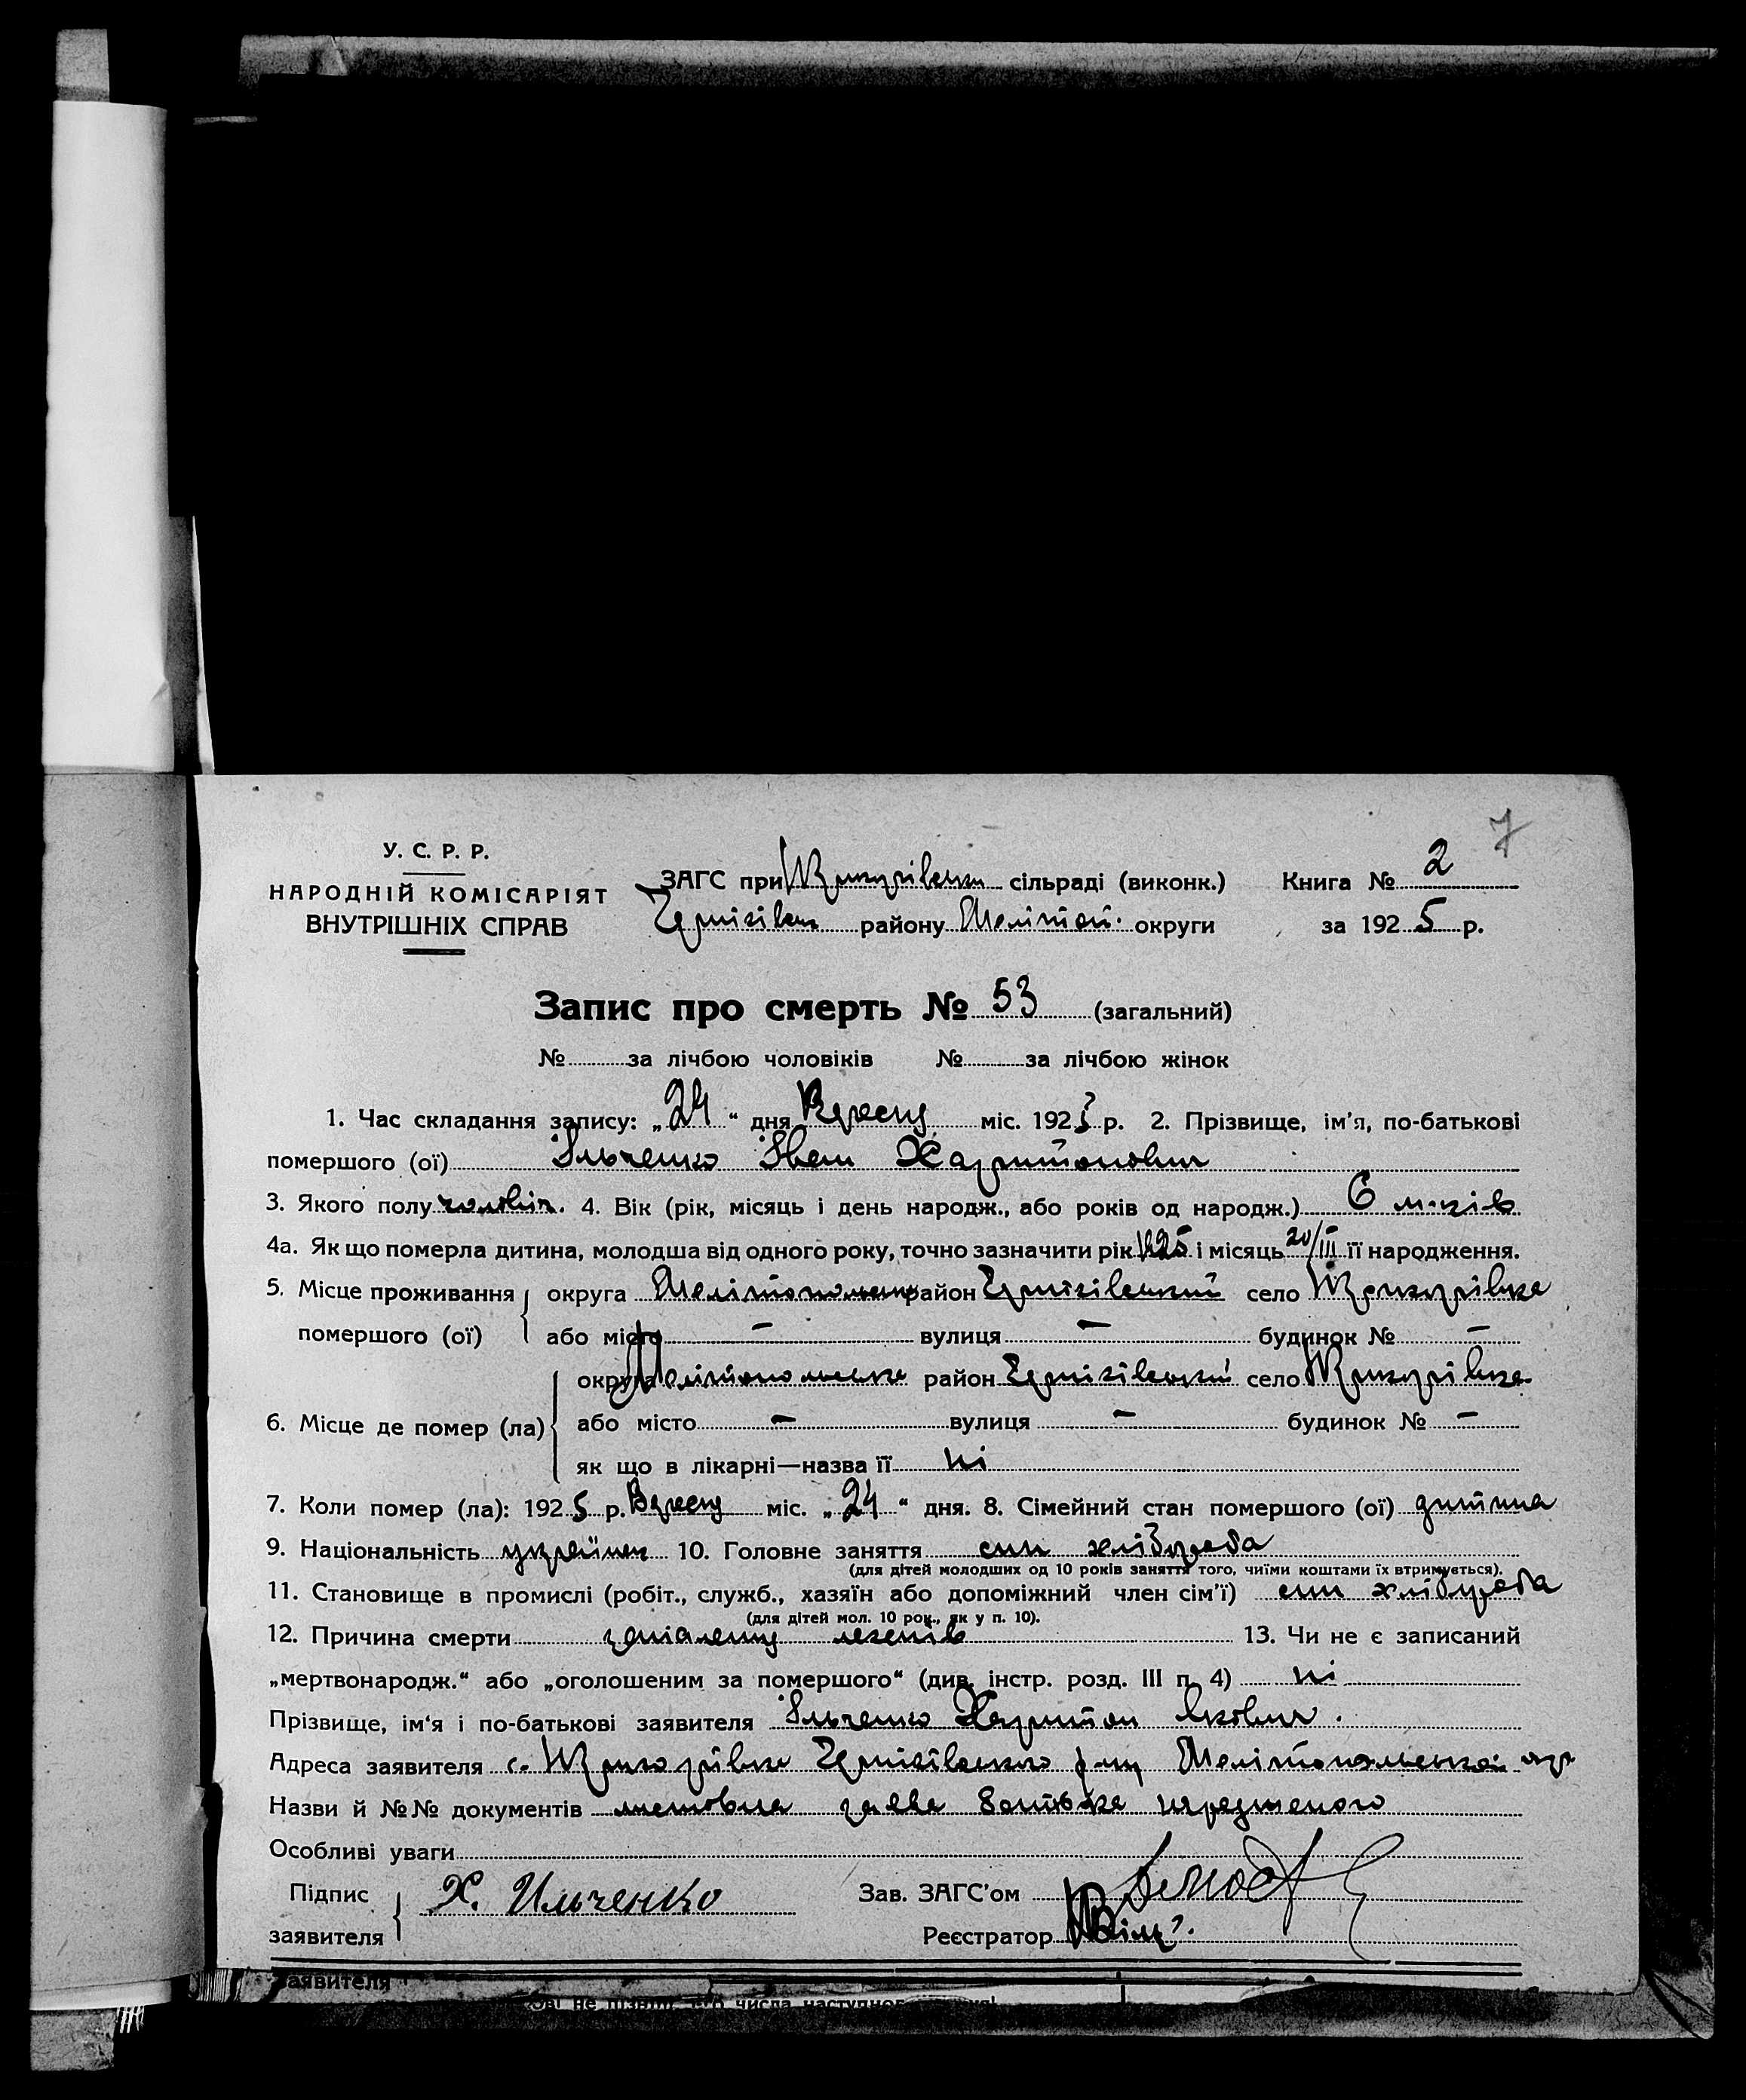 7
У. С. Р. Р.
НАРОДНІЙ КОМІСАРІЯТ
ВНУТРІШНІХ СПРАВ
ЗАГС при сільраді (виконк.) Книга № 2
Чернігівськ району Мелітоп. округи за 1925 р.
Запис про смерть № 53 (загальний)
№ за лічбою чоловіків № за лічбою жінок
1. Час складання запису: „24“ дня Вересня міс. 1925 р. 2. Прізвище, ім'я, по-батькові
помершого (ої) Ільченко Іван Харитонович
3. Якого полу чоловіч. 4. Вік (рік, місяць і день народж., або років од народж.) 6 м-ців
4а. Як що померла дитина, молодша від одного року, точно зазначити рік 1925 і місяць 20/III її народження.
5. Місце проживання округа Мелітопольськ район Чернігівський село
помершого (ої) або місто – вулиця – будинок № –
округа Мелітопольська район Чернігівський село
6. Місце де помер (ла) або місто – вулиця – будинок № –
як що в лікарні—назва її ні
7. Коли помер (ла): 1925 р. Вересня міс. „24“ дня. 8. Сімейний стан помершого (ої) дитина
9. Національність українець 10. Головне заняття син хлібороба
(для дітей молодших од 10 років заняття того, чиїми коштами їх втримується).
11. Становище в промислі (робіт., служб., хазяїн або допоміжний член сім'ї) син хлібороба
(для дітей мол. 10 рок., як у п. 10).
12. Причина смерти запалення легенів 13. Чи не є записаний
„мертвонародж.“ або „оголошеним за помершого“ (див. інстр. розд. III п. 4) ні
Прізвище, ім'я і по-батькові заявителя Ільченко Харитон Якович.
Адреса заявителя с. Чернігівського р-ну Мелітопольської окр
Назви й №№ документів заява батька
Особливі уваги
Підпис Х. Ильченко Зав. ЗАГС'ом
заявителя Реєстратор
заявителя